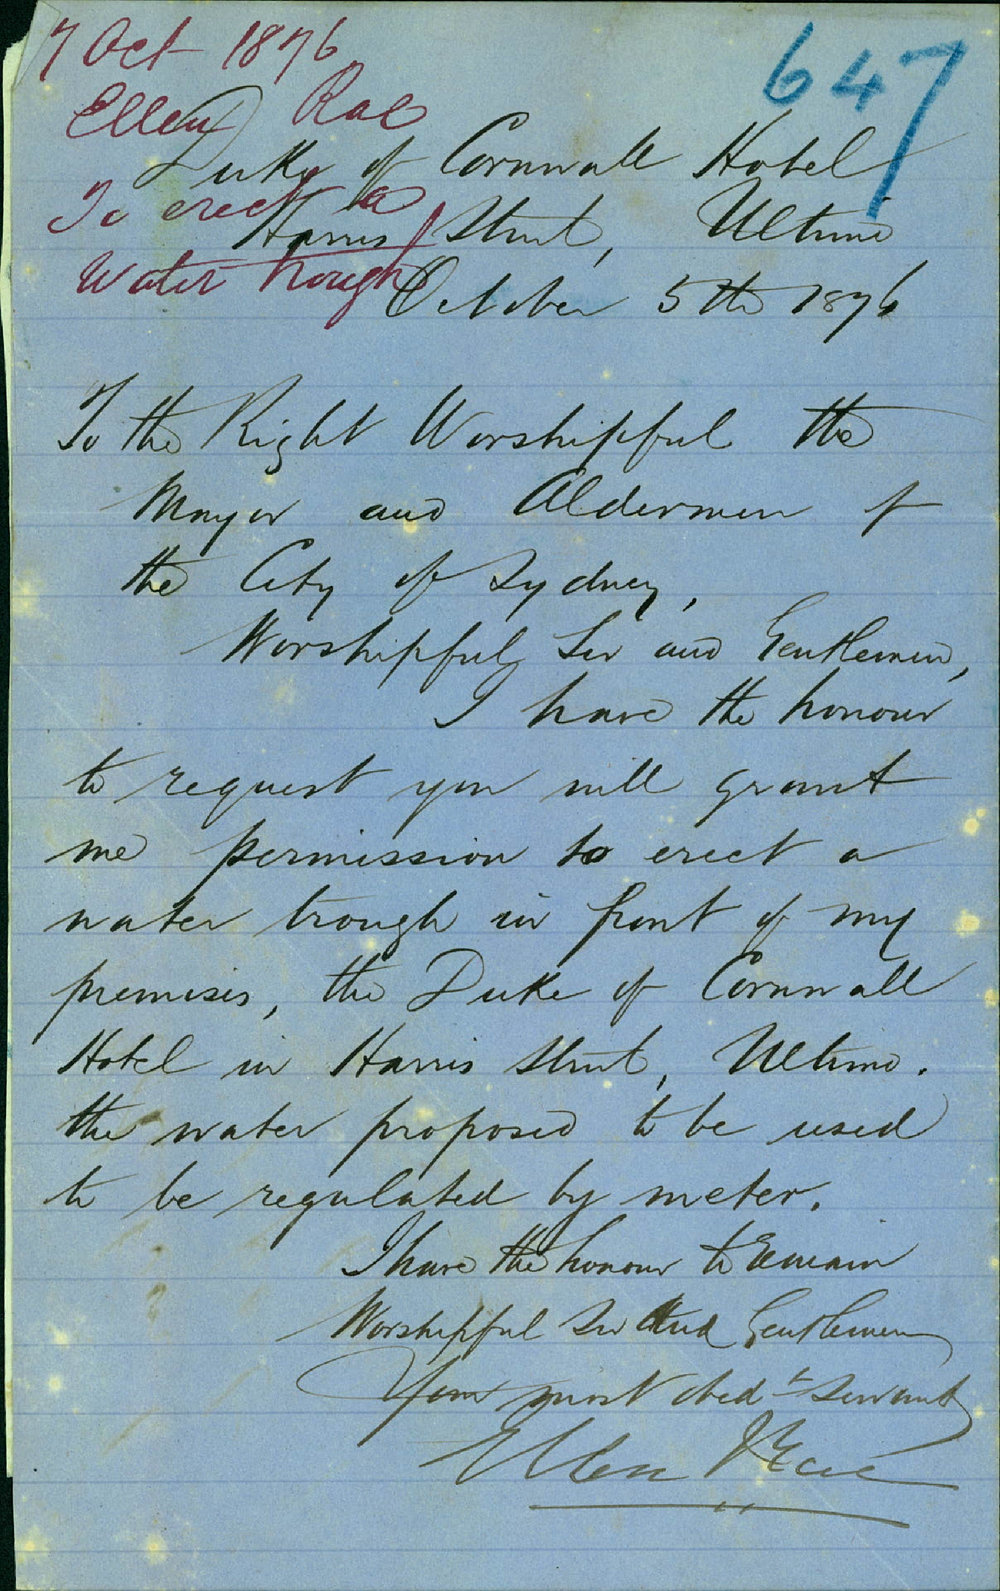 7 Oct 1876
Ellen Rae
To erect a
Water Trough
647
Duke of Cornwall Hotel
Harris Street, Ultimo
October 5th 1876
To the Right Worshipful the
Mayor and Aldermen of
the City of Sydney,
Worshipful Sir and Gentlemen,
I have the honour
to request you will grant
me permission to erect a
water trough in front of my
premises, the Duke of Cornwall
Hotel in Harris Street, Ultimo.
the water proposed to be used
to be regulated by meter.
I have the honour to remain
Worshipful Sir And Gentlemen
Your most obedt servant
Ellen Rae